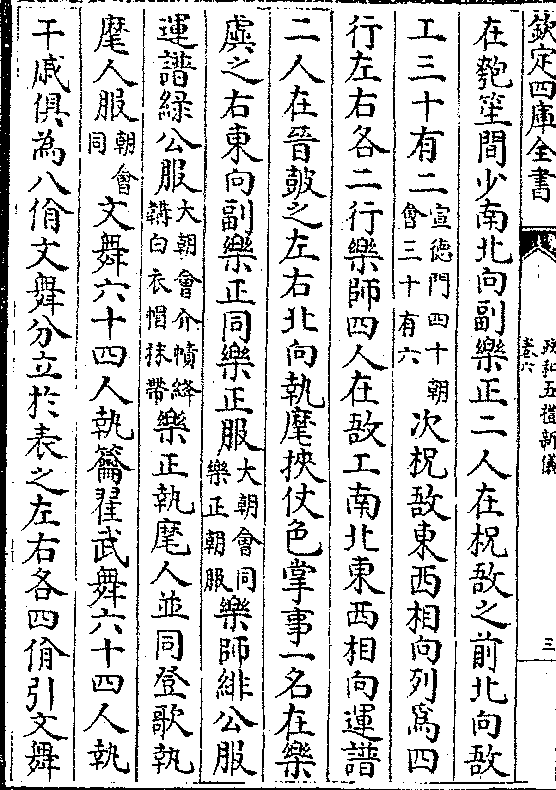 欽定四庫全書
政和五禮新儀
卷六
三
在匏笙間少南北向副樂正二人在柷敔之前北向敔
工三十有二宣德門四十朝會三十有六次柷敔東西相向列為四
行左右各二行樂師四人在敔工南北東西相向運譜
二人在晉鼓之左右北向執麾挾仗色掌事一名在樂
虡之右東向副樂正同樂正服大朝會同樂正朝服樂師緋公服
運譜綠公服大朝會介幘絳韝白衣帽抹帶樂正執麾人並同登歌執
麾人服朝會同文舞六十四人執籥翟武舞六十四人執
干戚俱為八佾文舞分立於表之左右各四佾引文舞